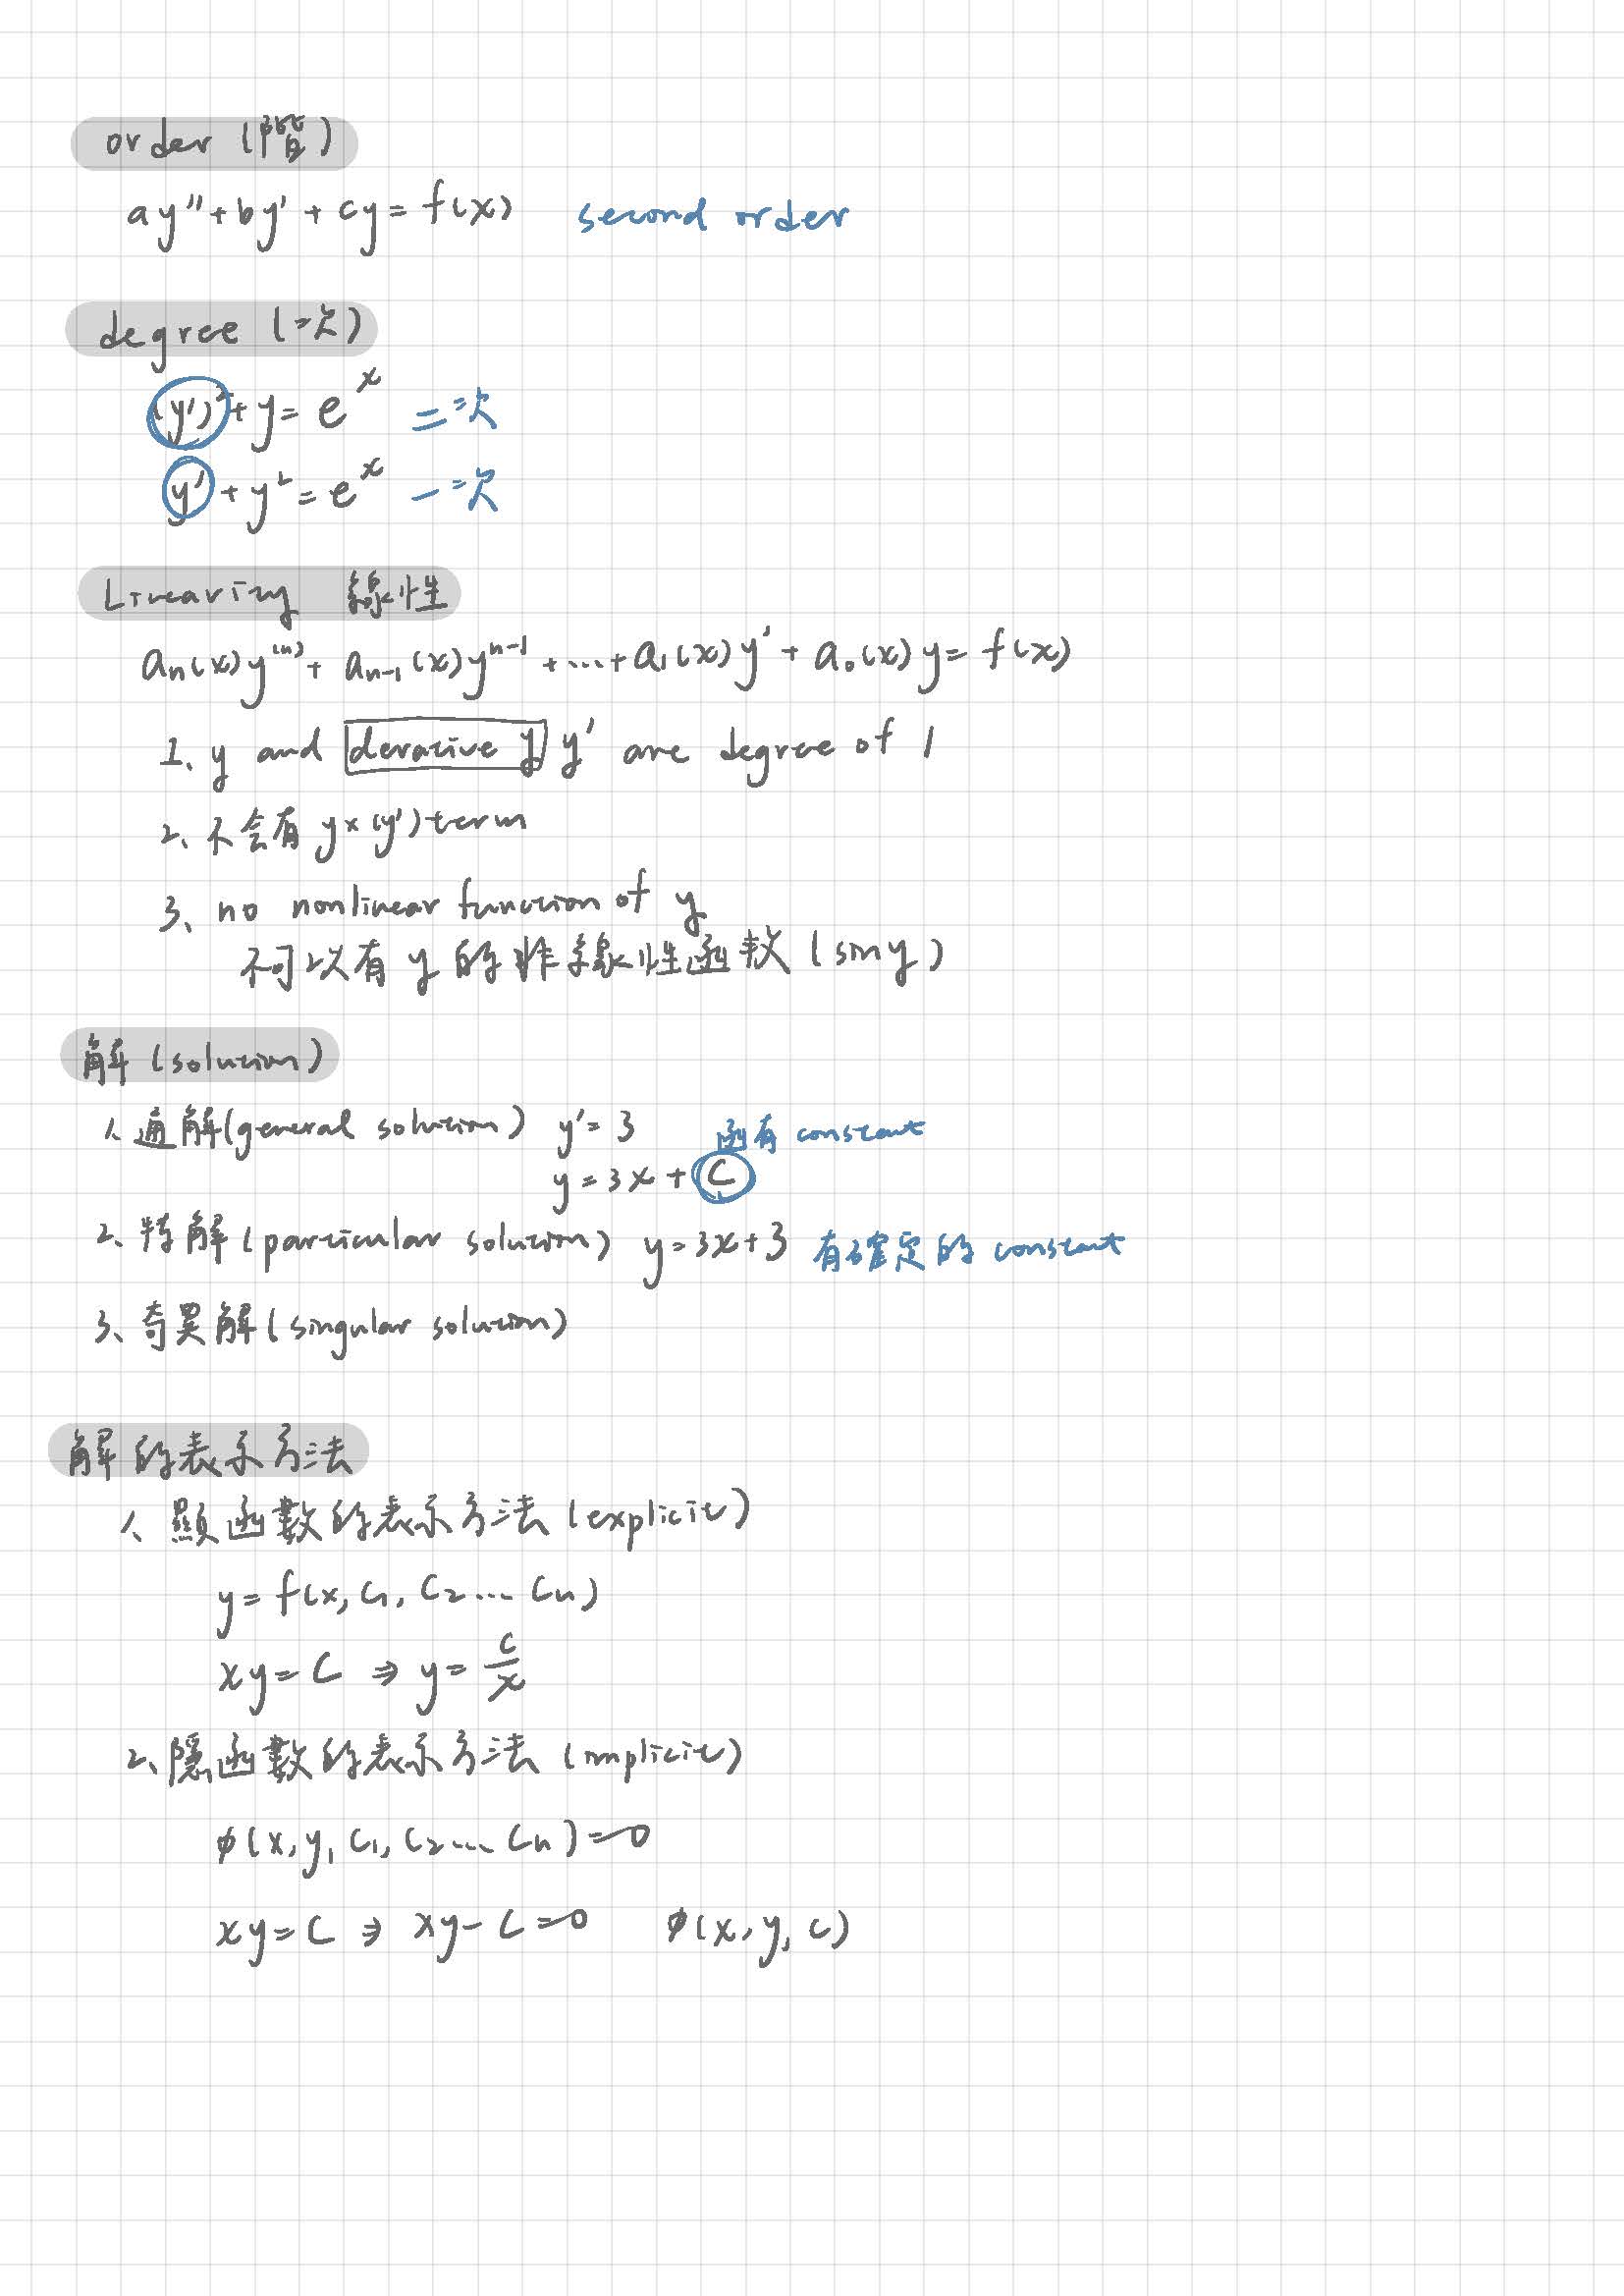 order (階)
ay''+by'+cy=f(x) second order
degree (次)
(y')²+y=eˣ 二次
y'+y²=eˣ 一次
Linearity 線性
aₙ(x)y⁽ⁿ⁾+aₙ₋₁(x)yⁿ⁻¹+...+a₁(x)y'+a₀(x)y=f(x)
1、y and derative y y' are degree of 1
2、不会有 y×(y') term
3、no nonlinear function of y
不可以有 y 的非線性函数 (siny)
解 (solution)
1、通解(general solution) y'=3 函有 constant
y=3x+C
2、特解(particular solution) y=3x+3 有確定的 constant
3、奇異解(singular solution)
解的表示方法
1、顯函數的表示方法 (explicit)
y=f(x,C₁,C₂...Cₙ)
xy=C ⇒ y=C/x
2、隱函數的表示方法 (implicit)
φ(x,y,C₁,C₂...Cₙ)=0
xy=C ⇒ xy-C=0 φ(x,y,C)